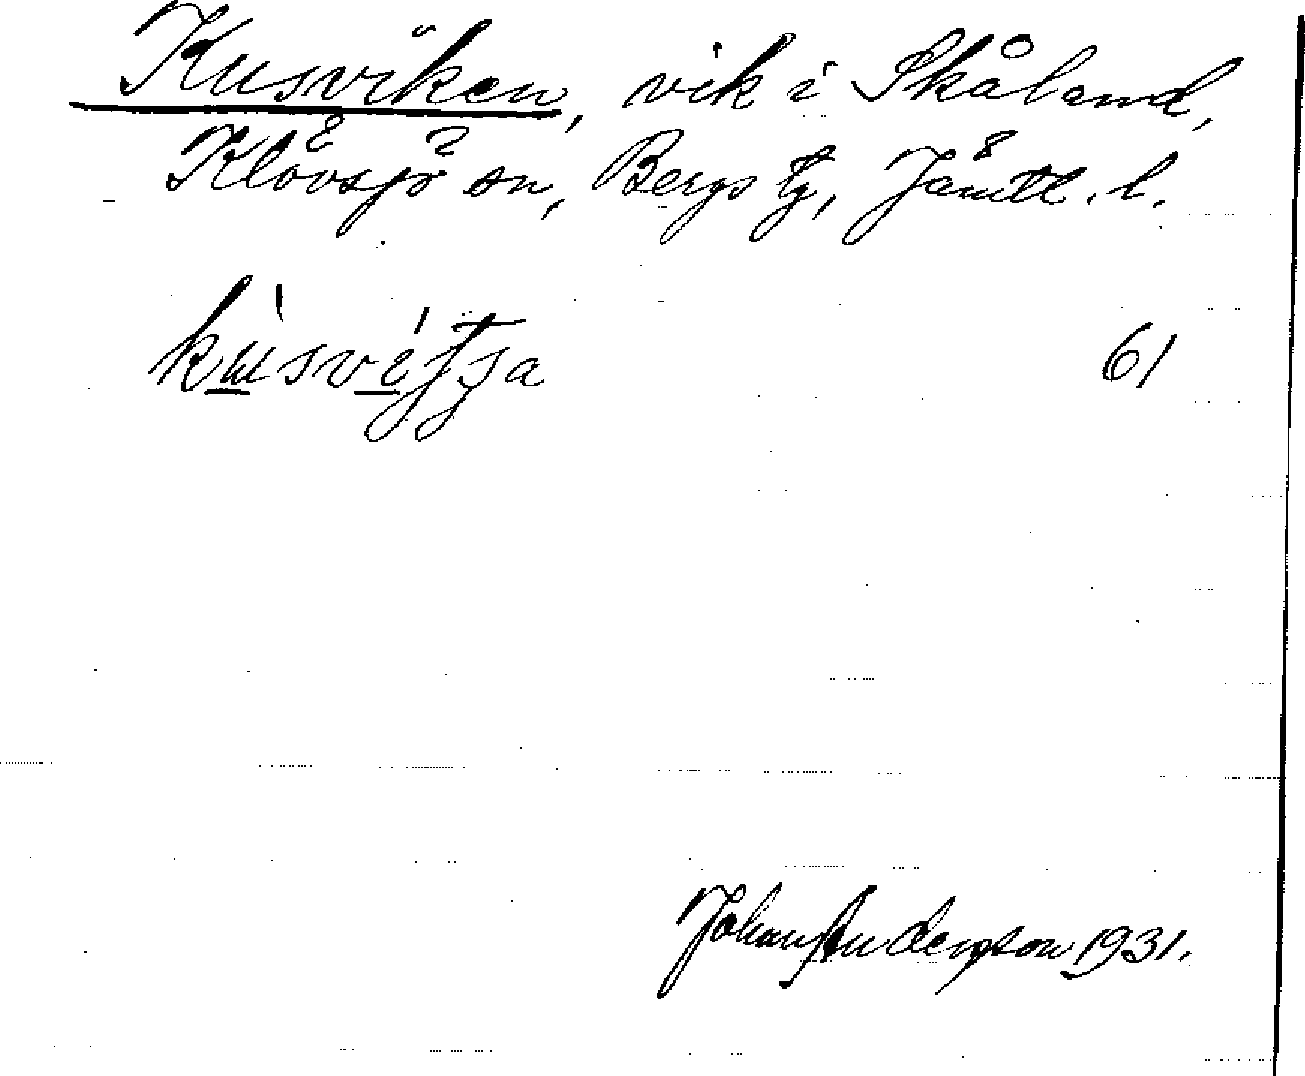 Kusviken, vik i Skåland,
Klövsjö sn, Bergs tg, Jämtl. l.
61
Johan Andersson 1931.